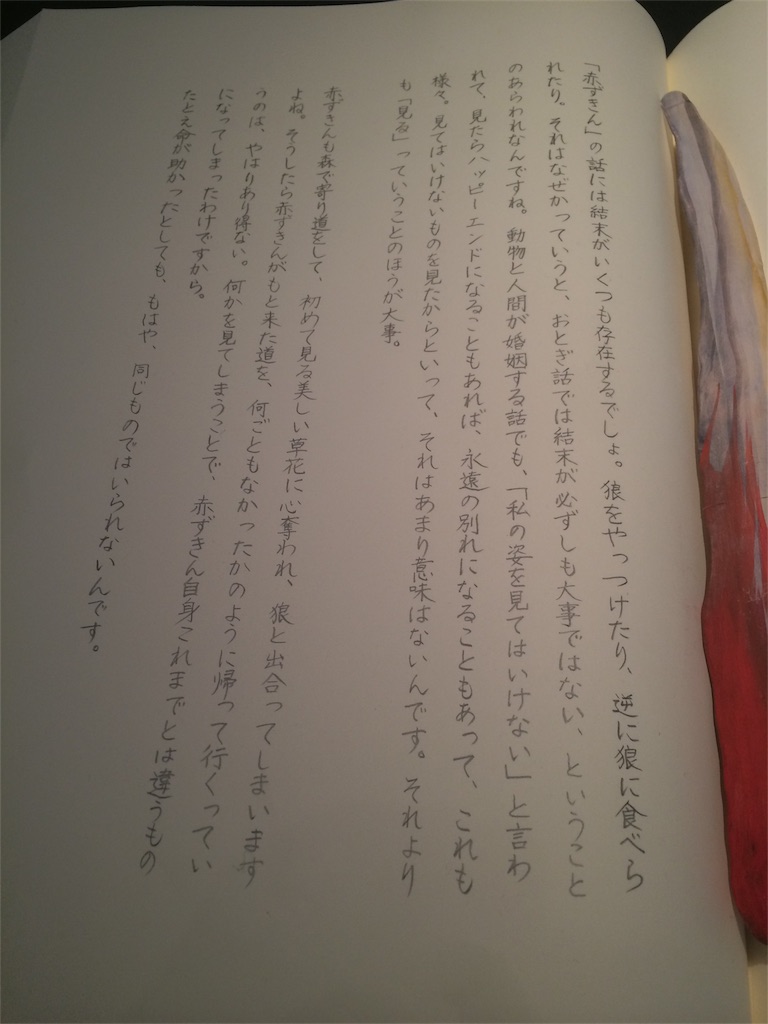 「赤ずきん」の話には結末がいくつも存在するでしょ。狼をやっつけたり、逆に狼に食べら
れたり。それはなぜかっていうと、おとぎ話では結末が必ずしも大事ではない、ということ
のあらわれなんですね。動物と人間が婚姻する話でも、「私の姿を見てはいけない」と言わ
れて、見たらハッピーエンドになることもあれば、永遠の別れになることもあって、これも
様々。見てはいけないものを見たからといって、それはあまり意味はないんです。それより
も「見る」っていうことのほうが大事。
赤ずきんも森で寄り道をして、初めて見る美しい草花に心奪われ、狼と出合ってしまいます
よね。そうしたら赤ずきんがもと来た道を、何ごともなかったかのように帰って行くってい
うのは、やはりあり得ない。何かを見てしまうことで、赤ずきん自身これまでとは違うもの
になってしまったわけですから。
たとえ命が助かったとしても、もはや、同じものではいられないんです。